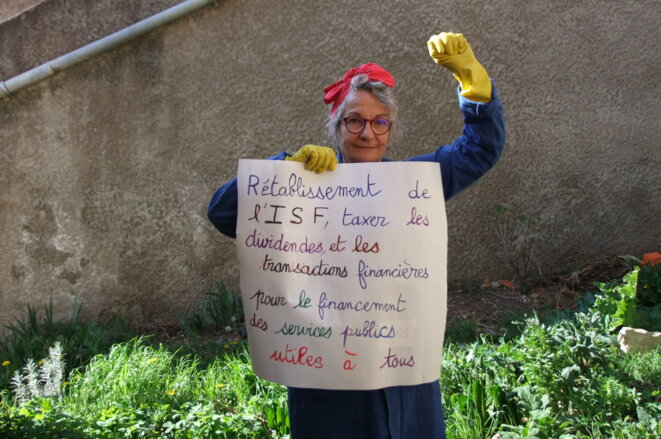 Rétablissement de
l'ISF, taxer les
dividendes, et les
transactions financières
pour le financement
des services publics
utiles à tous